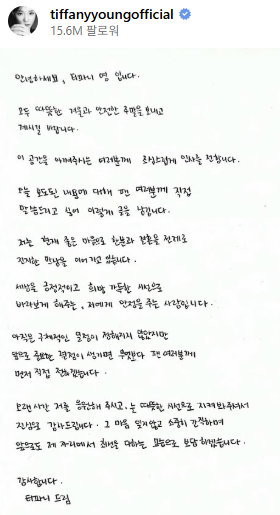 tiffanyyoungofficial
15.6M 팔로워
안녕하세요, 티파니 영 입니다.
모두 따뜻한 겨울과 안전한 주말을 보내고
계시길 바랍니다.
이 공간을 아껴주시는 여러분께 조심스럽게 인사를 전합니다.
오늘 보도된 내용에 대해 팬 여러분께 직접
말씀드리고 싶어 이렇게 글을 남깁니다.
저는 현재 좋은 마음으로 한분과 결혼을 전제로
진지한 만남을 이어가고 있습니다.
세상을 긍정적이고 희망 가득한 시선으로
바라보게 해주는, 저에게 안정을 주는 사람입니다.
아직은 구체적인 일정이 정해지지 않았지만
앞으로 중요한 결정이 생기면 무엇보다 팬 여러분께
먼저 직접 전하겠습니다.
오랜시간 저를 응원해 주시고, 늘 따뜻한 시선으로 지켜봐주셔서
진심으로 감사드립니다. 그 마음 잊지않고 소중히 간직하며
앞으로도 제 자리에서 최선을 다하는 모습으로 보답하겠습니다.
감사합니다.
티파니 드림